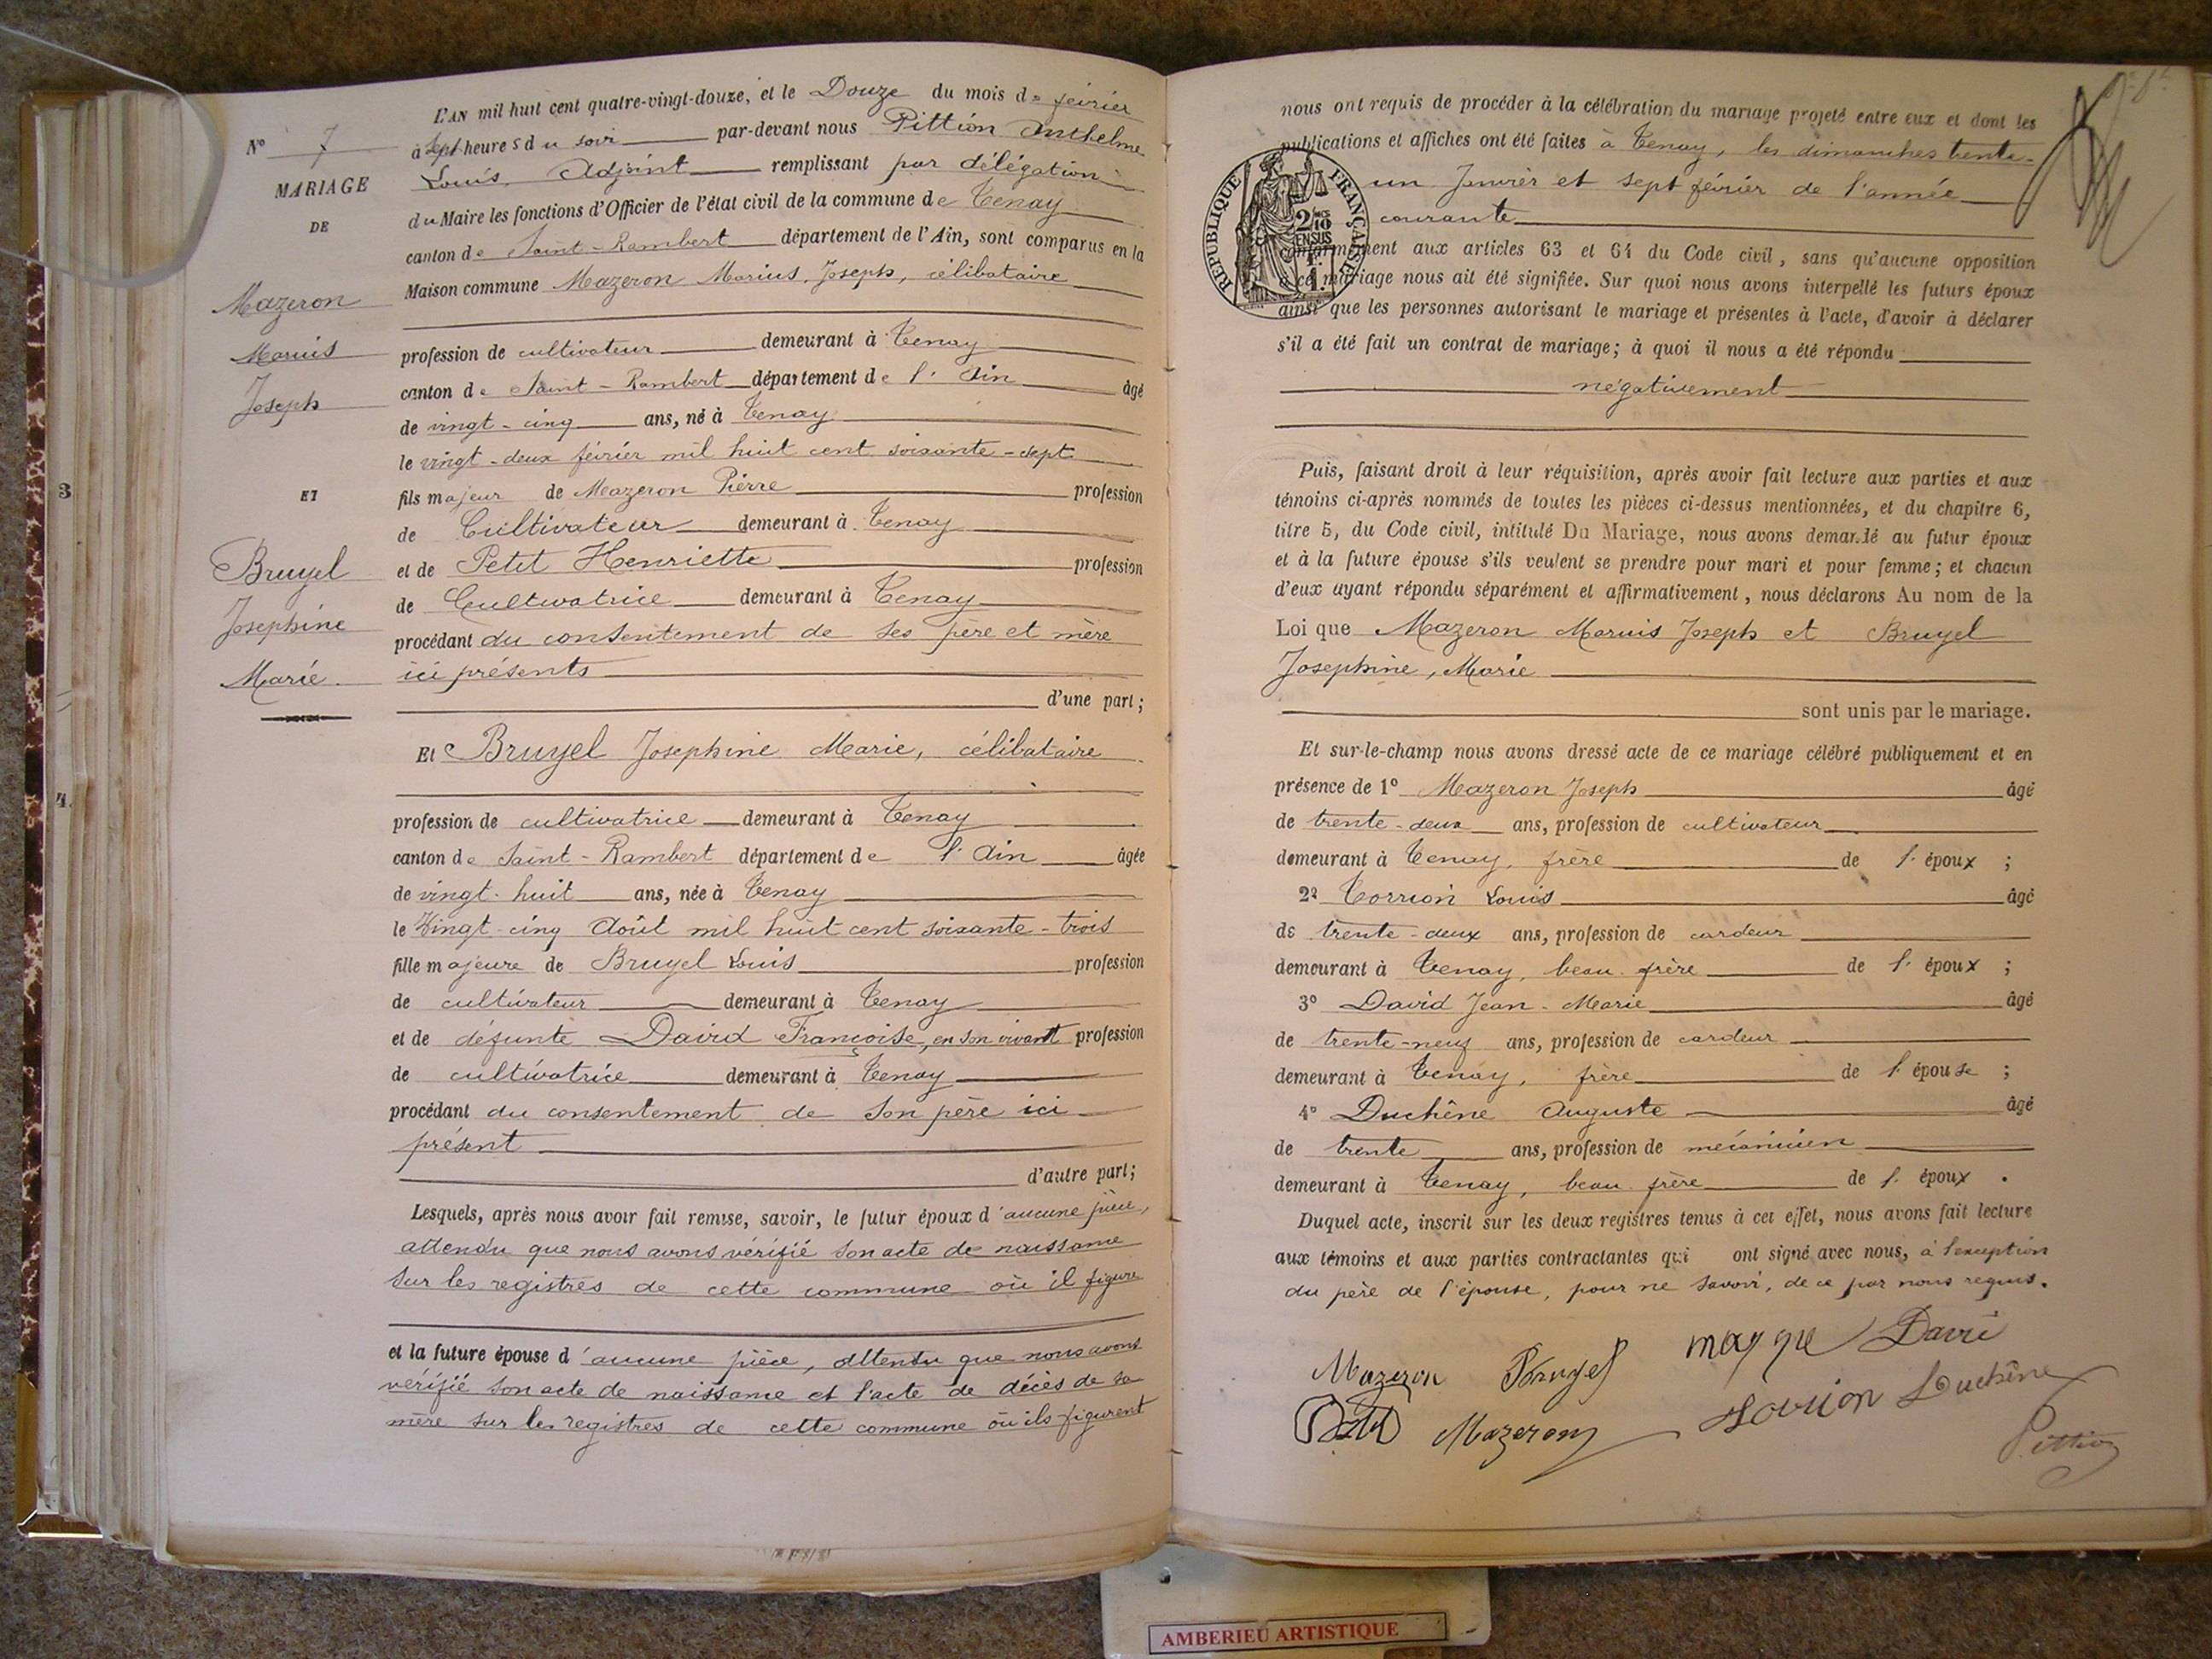 L'AN mil huit cent quatre-vingt-douze, et le Douze du mois de février
à Sept heures du soir par-devant nous Pittion Anthelme
Louis, Adjoint remplissant par délégation
du Maire les fonctions d'Officier de l'état civil de la commune de Tenay
canton de Saint-Rambert département de l'Ain, sont comparus en la
Maison commune Mazeron Marius, Joseph, célibataire
profession de cultivateur demeurant à Tenay
canton de Saint-Rambert département de l'Ain âgé
de vingt-cinq ans, né à Tenay
le vingt-deux février mil huit cent soixante-sept
fils majeur de Mazeron Pierre profession
de Cultivateur demeurant à Tenay
et de Petit Henriette profession
de Cultivatrice demeurant à Tenay
procédant du consentement de ses père et mère
ici présents
d'une part;
Et Bruyel Josephine Marie, célibataire
profession de cultivatrice demeurant à Tenay
canton de Saint-Rambert département de l'Ain âgée
de vingt-huit ans, née à Tenay
le Vingt-cinq Août mil huit cent soixante-trois
fille majeure de Bruyel Louis profession
de cultivateur demeurant à Tenay
et de défunte David Françoise, en son vivant profession
de cultivatrice demeurant à Tenay
procédant du consentement de son père ici
présent
d'autre part;
Lesquels, après nous avoir fait remise, savoir, le futur époux d'aucune pièce,
attendu que nous avons vérifié son acte de naissance
sur les registres de cette commune où il figure
et la future épouse d'aucune pièce, attendu que nous avons
vérifié son acte de naissance et l'acte de décès de sa
mère sur les registres de cette commune où ils figurent
N° 7
MARIAGE
DE
Mazeron
Marius
Joseph
ET
Bruyel
Josephine
Marie.
3
4.
nous ont requis de procéder à la célébration du mariage projeté entre eux et dont les
publications et affiches ont été faites à Tenay, les dimanches trente-
un Janvier et sept février de l'année
courante
conformément aux articles 63 et 64 du Code civil, sans qu'aucune opposition
à ce mariage nous ait été signifiée. Sur quoi nous avons interpellé les futurs époux
ainsi que les personnes autorisant le mariage et présentes à l'acte, d'avoir à déclarer
s'il a été fait un contrat de mariage; à quoi il nous a été répondu
négativement
Puis, faisant droit à leur réquisition, après avoir fait lecture aux parties et aux
témoins ci-après nommés de toutes les pièces ci-dessus mentionnées, et du chapitre 6,
titre 5, du Code civil, intitulé Du Mariage, nous avons demandé au futur époux
et à la future épouse s'ils veulent se prendre pour mari et pour femme; et chacun
d'eux ayant répondu séparément et affirmativement, nous déclarons Au nom de la
Loi que Mazeron Marius Joseph et Bruyel
Josephine, Marie
sont unis par le mariage.
Et sur-le-champ nous avons dressé acte de ce mariage célébré publiquement et en
présence de 1° Mazeron Joseph âgé
de trente-deux ans, profession de cultivateur
demeurant à Tenay, frère de l'époux;
2° Torrion Louis âgé
de trente-deux ans, profession de cardeur
demeurant à Tenay, beau-frère de l'époux;
3° David Jean-Marie âgé
de trente-neuf ans, profession de cardeur
demeurant à Tenay, frère de l'épouse;
4° Duchêne Auguste âgé
de trente ans, profession de mécanicien
demeurant à Tenay, beau-frère de l'époux.
Duquel acte, inscrit sur les deux registres tenus à cet effet, nous avons fait lecture
aux témoins et aux parties contractantes qui ont signé avec nous, à l'exception
du père de l'épouse, pour ne savoir, de ce par nous requis.
Mazeron Bruyel David
Petit Mazeron Duchêne
Pittion
RÉPUBLIQUE FRANÇAISE
2/10 EN SUS
AMBERIEU ARTISTIQUE